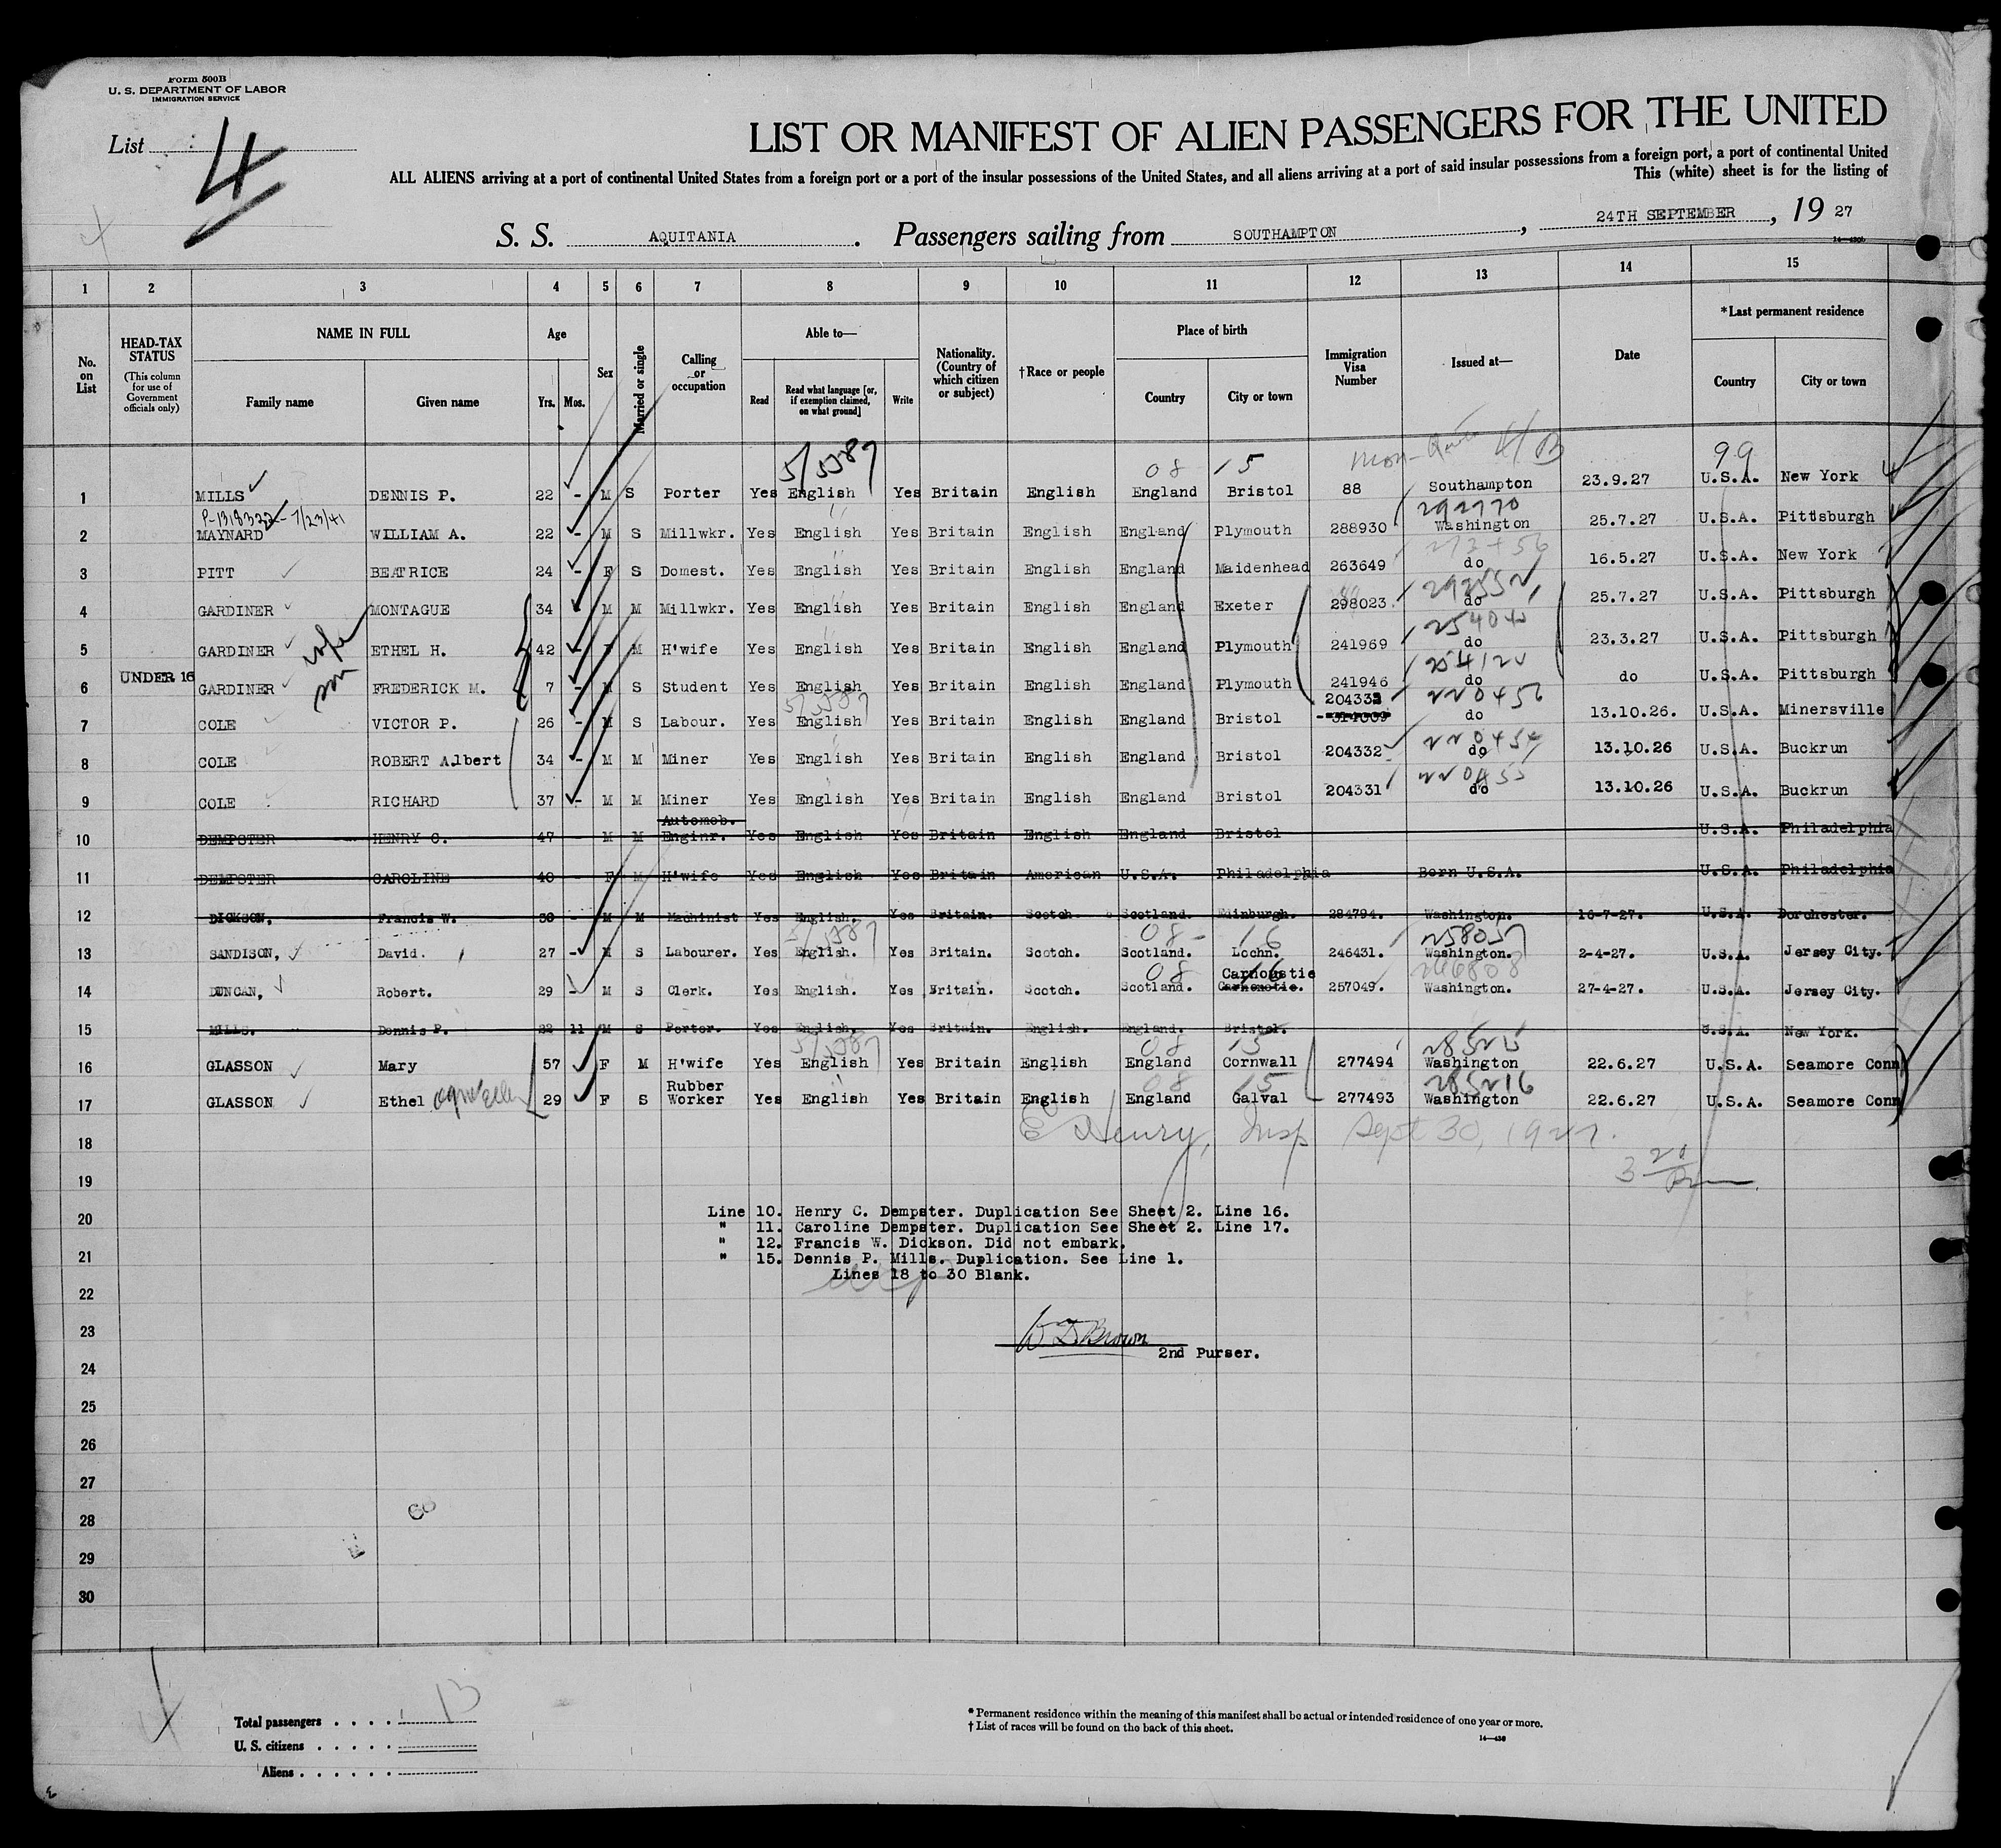 Form 500B
U. S. DEPARTMENT OF LABOR
IMMIGRATION SERVICE
List 4
LIST OR MANIFEST OF ALIEN PASSENGERS FOR THE UNITED
ALL ALIENS arriving at a port of continental United States from a foreign port or a port of the insular possessions of the United States, and all aliens arriving at a port of said insular possessions from a foreign port, a port of continental United
This (white) sheet is for the listing of
S. S. AQUITANIA . Passengers sailing from SOUTHAMPTON , 24TH SEPTEMBER , 19 27
1 2 3 4 5 6 7 8 9 10 11 12 13 14 15
No. on List
HEAD-TAX STATUS (This column for use of Government officials only)
NAME IN FULL
Family name Given name
Age
Yrs. Mos.
Sex
Married or single
Calling or occupation
Able to—
Read Read what language [or, if exemption claimed, on what ground] Write
Nationality. (Country of which citizen or subject)
†Race or people
Place of birth
Country City or town
Immigration Visa Number
Issued at—
Date
*Last permanent residence
Country City or town
5/5587 08 15 99
1 MILLS DENNIS P. 22 - M S Porter Yes English Yes Britain English England Bristol 88 Southampton 23.9.27 U.S.A. New York
P-1318322- 7/23/41 292770
2 MAYNARD WILLIAM A. 22 - M S Millwkr. Yes English Yes Britain English England Plymouth 288930 Washington 25.7.27 U.S.A. Pittsburgh
3 PITT BEATRICE 24 - F S Domest. Yes English Yes Britain English England Maidenhead 263649 do 16.5.27 U.S.A. New York
4 GARDINER MONTAGUE 34 - M M Millwkr. Yes English Yes Britain English England Exeter 298023 do 25.7.27 U.S.A. Pittsburgh
5 GARDINER wife ETHEL H. 42 - F M H'wife Yes English Yes Britain English England Plymouth 241969 do 23.3.27 U.S.A. Pittsburgh
6 UNDER 16 GARDINER son FREDERICK M. 7 - M S Student Yes English Yes Britain English England Plymouth 241946 do do U.S.A. Pittsburgh
204333 220456
7 COLE VICTOR P. 26 - M S Labour. Yes English Yes Britain English England Bristol do 13.10.26. U.S.A. Minersville
8 COLE ROBERT Albert 34 - M M Miner Yes English Yes Britain English England Bristol 204332 do 13.10.26 U.S.A. Buckrun
220455
9 COLE RICHARD 37 - M M Miner Yes English Yes Britain English England Bristol 204331 do 13.10.26 U.S.A. Buckrun
Automob.
10 DEMPSTER HENRY C. 47 - M M Enginr. Yes English Yes Britain English England Bristol U.S.A. Philadelphia
11 DEMPSTER CAROLINE 40 - F M H'wife Yes English Yes Britain American U.S.A. Philadelphia Born U.S.A. U.S.A. Philadelphia
12 DICKSON, Francis W. 30 - M M Machinist Yes English. Yes Britain. Scotch. Scotland. Edinburgh. 284794. Washington. 16-7-27. U.S.A. Dorchester.
08 16 258057
13 SANDISON, David. 27 - M S Labourer. Yes English. Yes Britain. Scotch. Scotland. Lochn. 246431. Washington. 2-4-27. U.S.A. Jersey City.
08 16 Carnoustie 266808
14 DUNCAN, Robert. 29 - M S Clerk. Yes English. Yes Britain. Scotch. Scotland. 257049. Washington. 27-4-27. U.S.A. Jersey City.
15 MILLS. Dennis P. 22 11 M S Porter. Yes English. Yes Britain. English. England. Bristol. U.S.A. New York.
5/5587 08 15 285215
16 GLASSON Mary 57 F M H'wife Yes English Yes Britain English England Cornwall 277494 Washington 22.6.27 U.S.A. Seamore Conn
Rubber 08 15 285216
17 GLASSON Ethel 29 F S Worker Yes English Yes Britain English England Galval 277493 Washington 22.6.27 U.S.A. Seamore Conn
E Henry, Insp Sept 30, 1927.
18
19
3 20
20
Line 10. Henry C. Dempster. Duplication See Sheet 2. Line 16.
" 11. Caroline Dempster. Duplication See Sheet 2. Line 17.
" 12. Francis W. Dickson. Did not embark.
21
" 15. Dennis P. Mills. Duplication. See Line 1.
Lines 18 to 30 Blank.
22
23
W D. Brown
2nd Purser.
24
25
26
27
28
29
30
Total passengers . . . . 13
U. S. citizens . . . . .
Aliens . . . . . .
* Permanent residence within the meaning of this manifest shall be actual or intended residence of one year or more.
† List of races will be found on the back of this sheet.
14—430